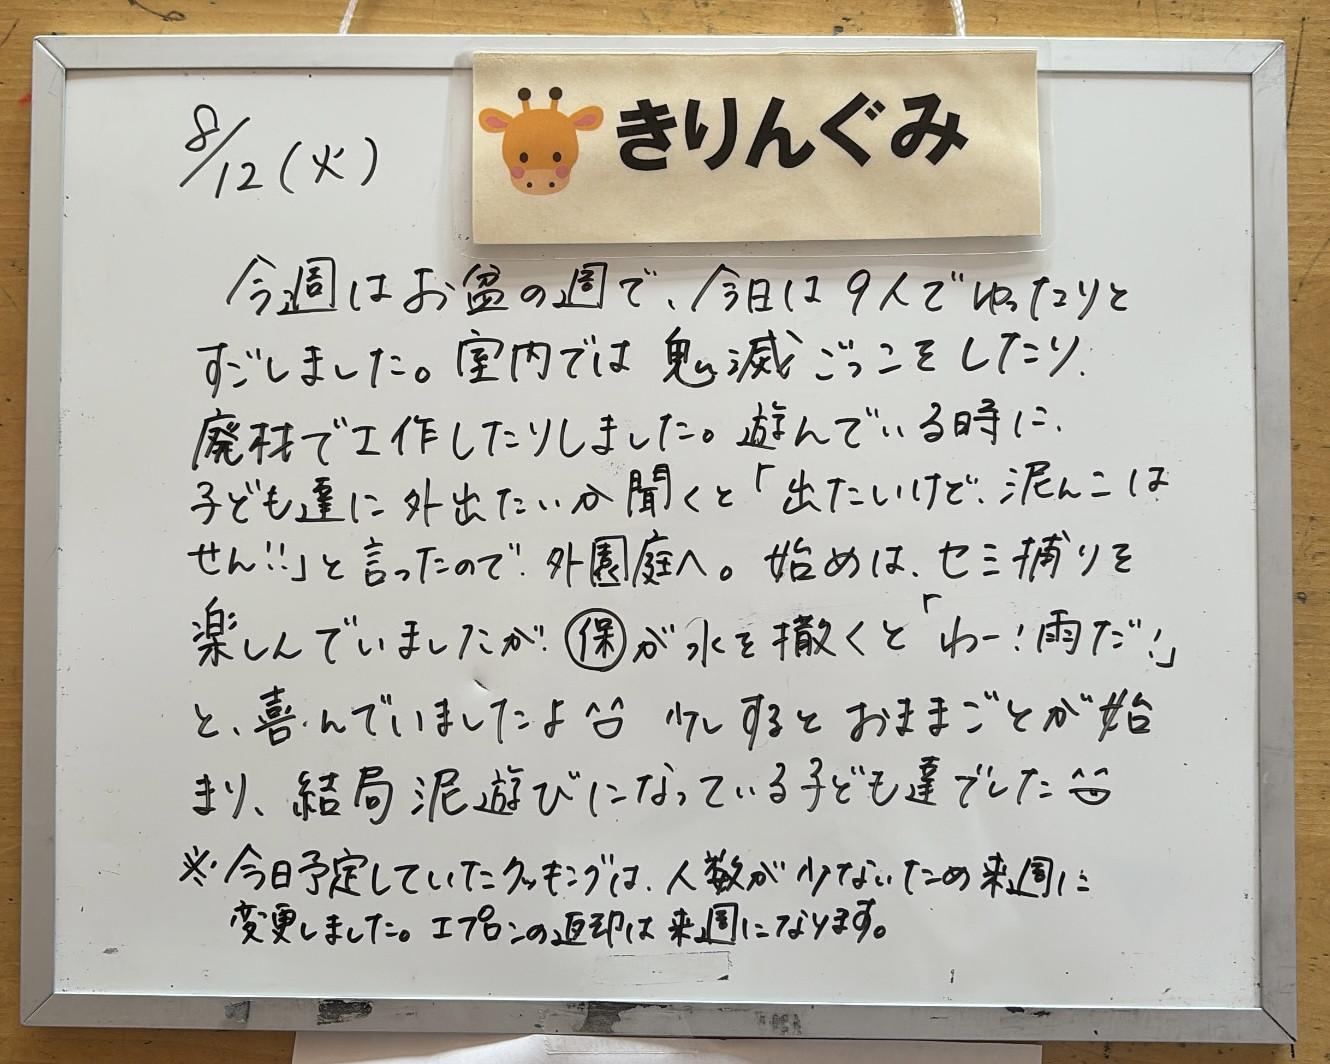 きりんぐみ
8/12(火)
今週はお盆の週で、今日は9人でゆったりと
すごしました。室内では鬼滅ごっこをしたり、
廃材で工作したりしました。遊んでいる時に、
子ども達に外出たいか聞くと「出たいけど、泥んこは
せん!!」と言ったので、外園庭へ。始めは、セミ捕りを
楽しんでいましたが、㋭が水を撒くと「わー!雨だ!」
と、喜んでいましたよ^^ 少しするとおままごとが始
まり、結局泥遊びになっている子ども達でした^^
※今日予定していたクッキングは、人数が少ないため来週に
変更しました。エプロンの返却は来週になります。